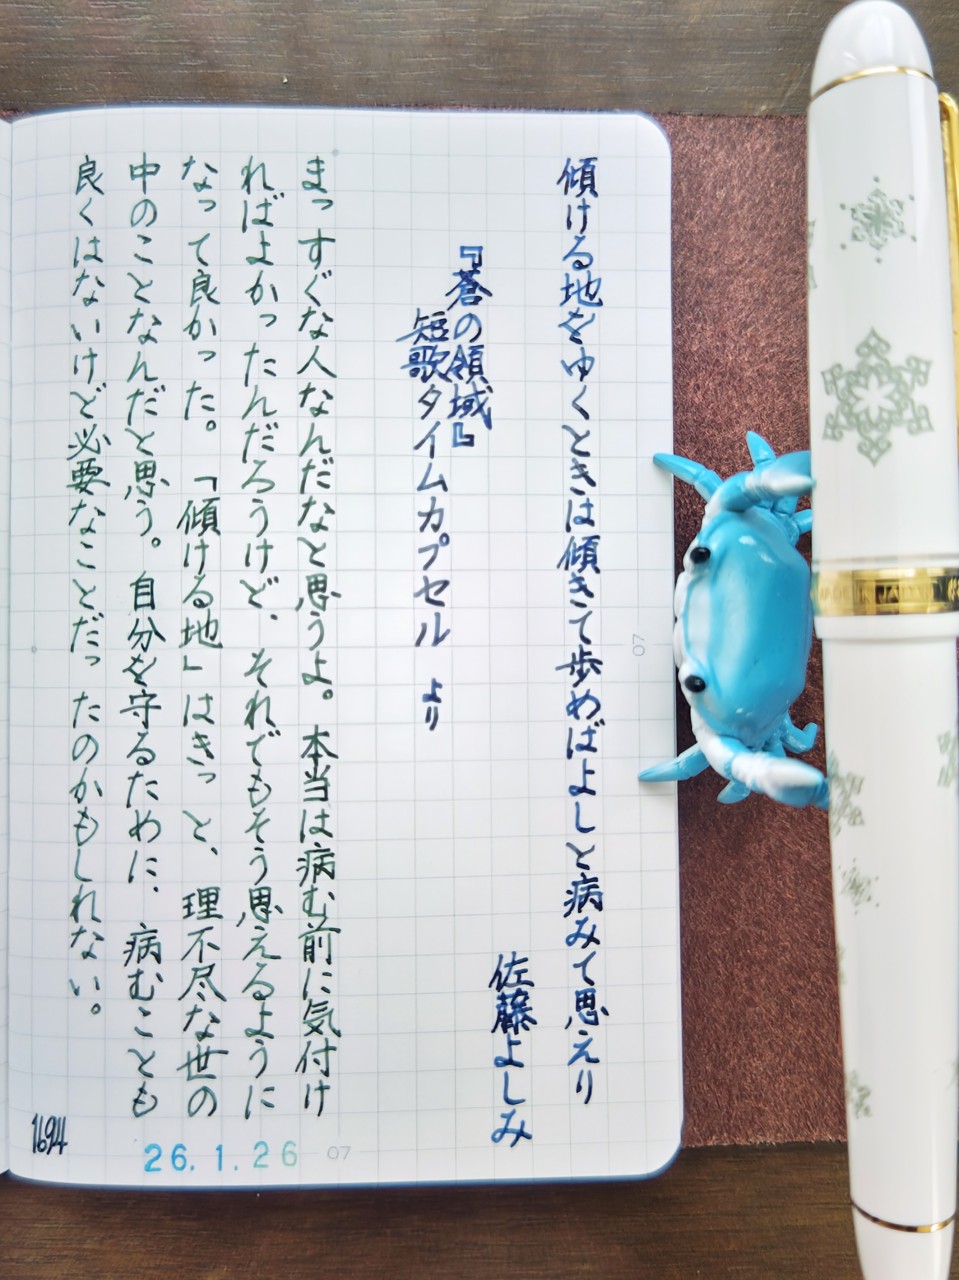 傾ける地をゆくときは傾きて歩めばよしと病みて思えり
佐藤よしみ
『蒼の領域』
短歌タイムカプセル より
まっすぐな人なんだなと思うよ。本当は病む前に気付け
ればよかったんだろうけど、それでもそう思えるように
なって良かった。「傾ける地」はきっと、理不尽な世の
中のことなんだと思う。自分を守るために、病むことも
良くはないけど必要なことだったのかもしれない。
1694
26.1.26
07
07
MADE IN JAPAN